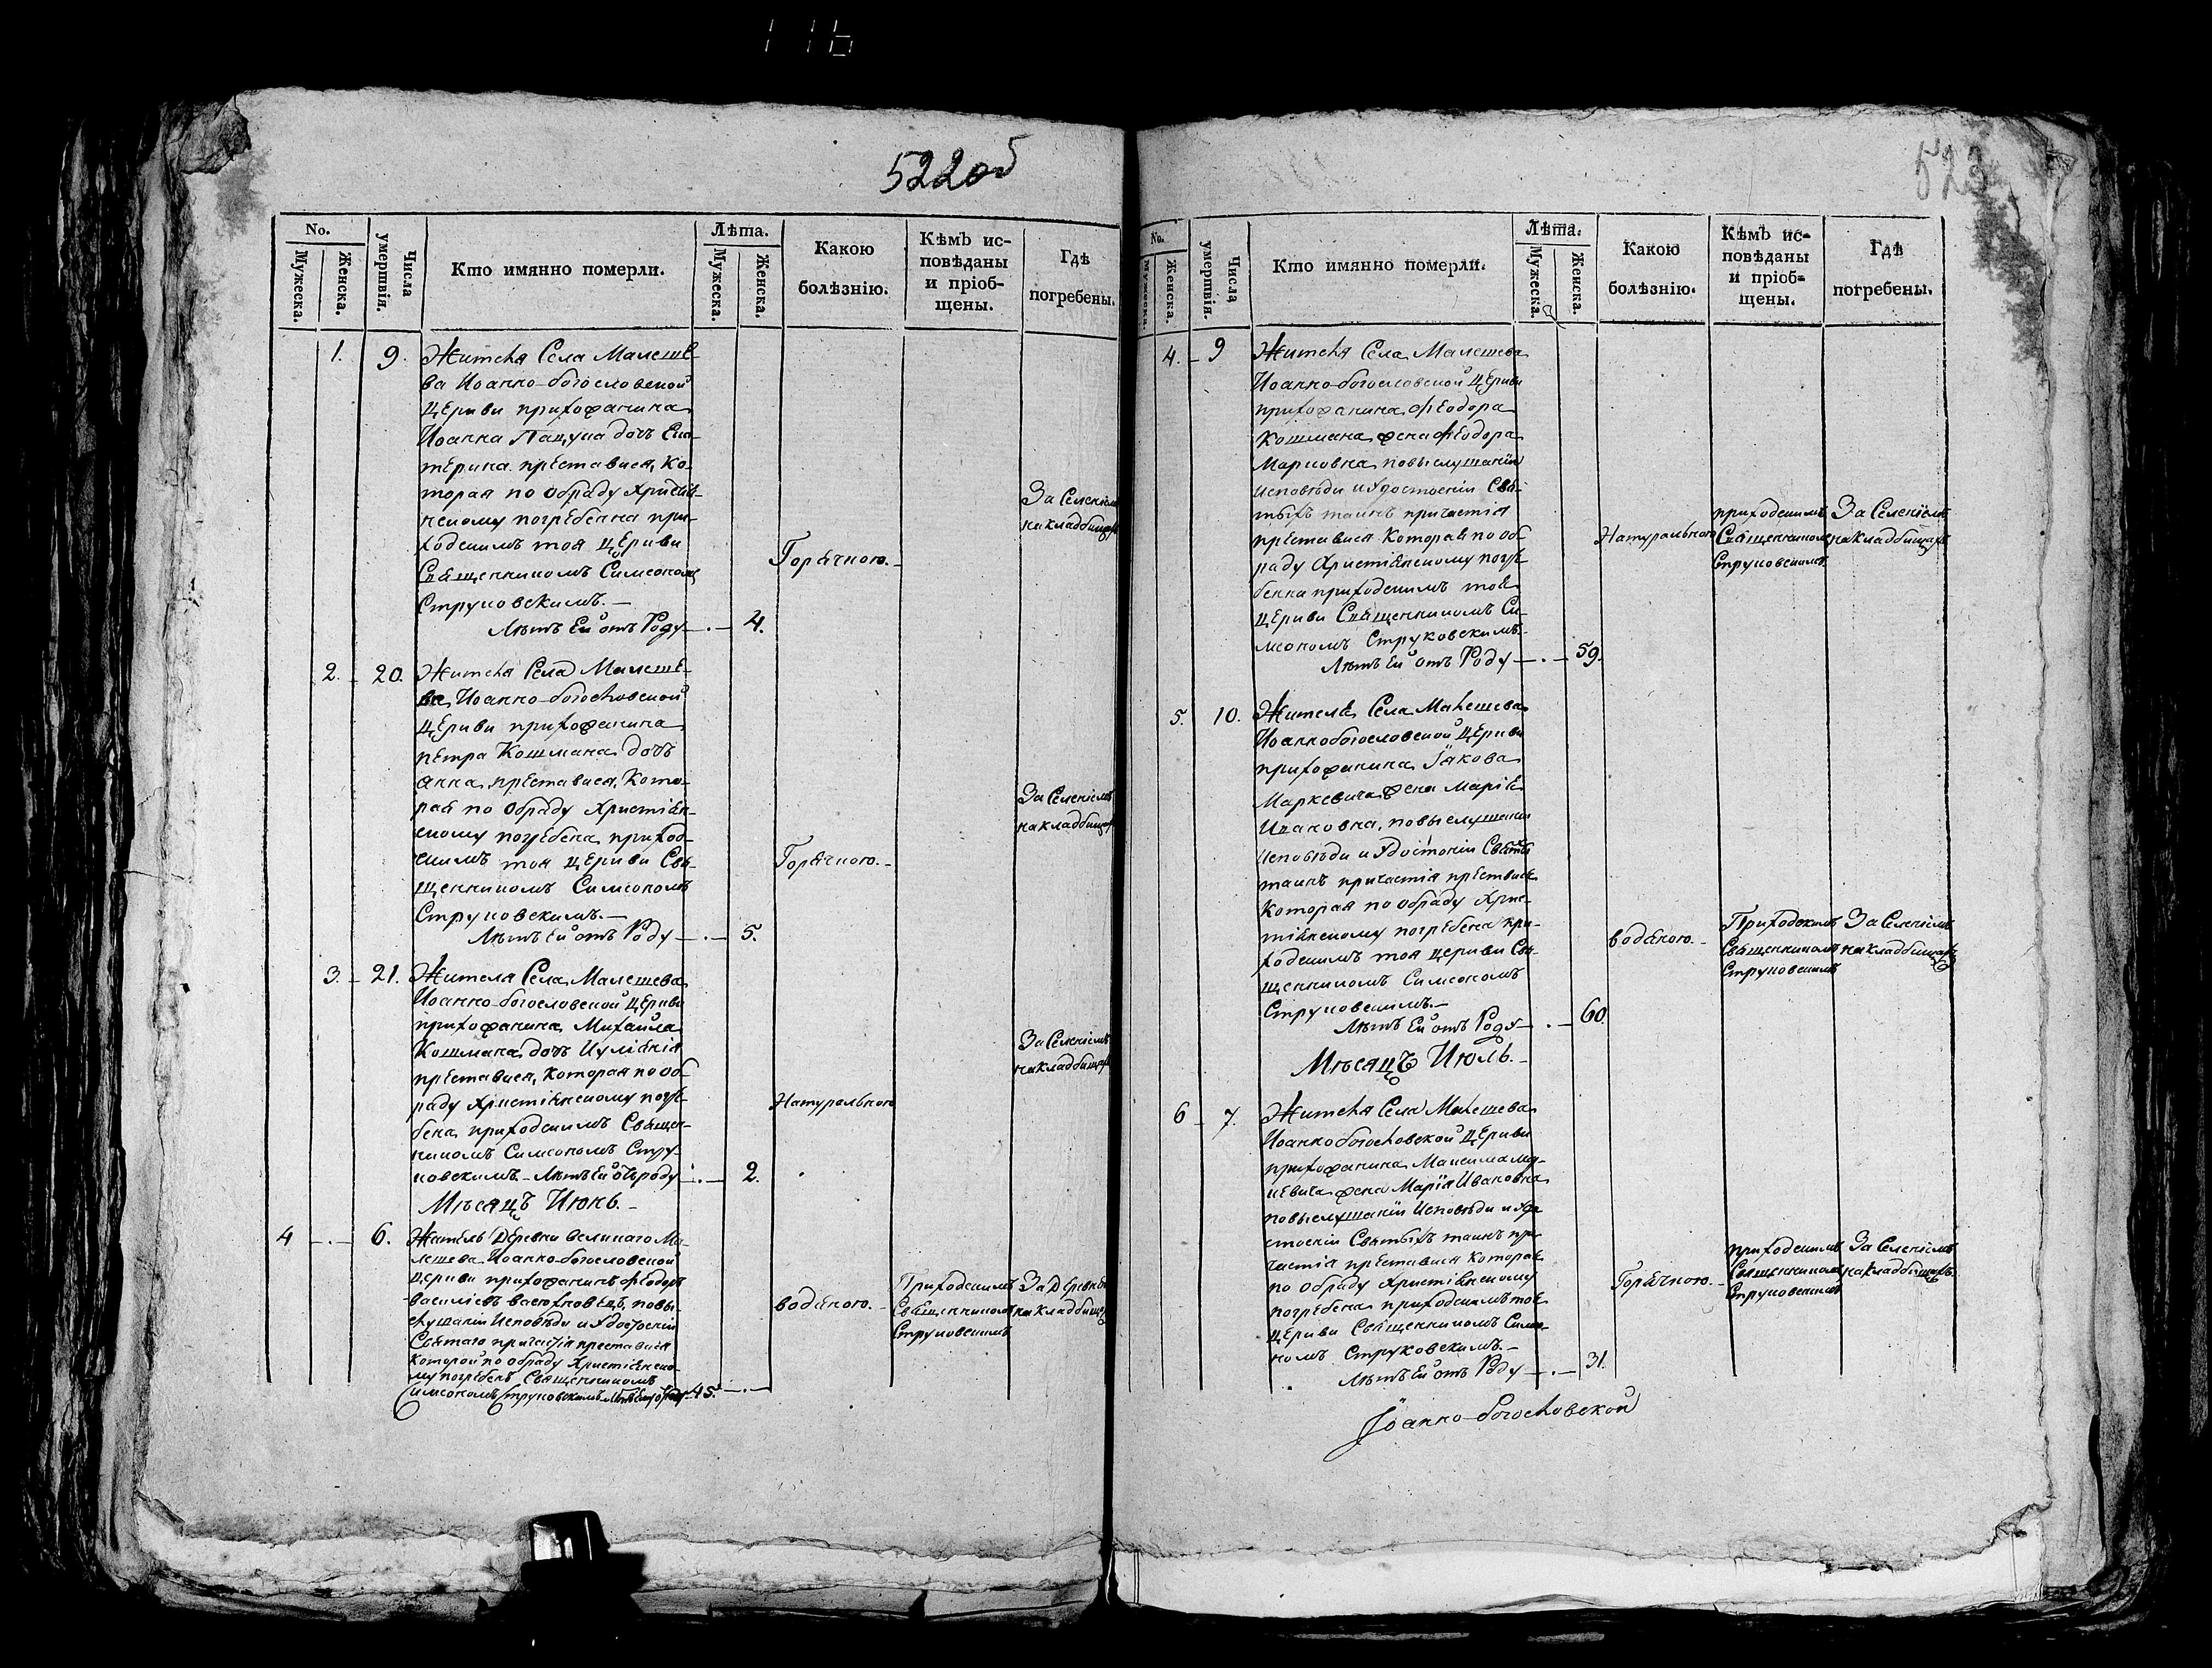 116
522об
No.
Мужеска.
Женска.
Числа умертвія.
Кто имянно померли.
Лѣта.
Мужеска.
Женска.
Какою
болѣзнію.
Кѣмъ ис-
повѣданы
и пріоб-
щены.
Гдѣ
погребены.
1. 9. Жителя Села Малеше-
ва Иоанно-богословской
Церкви прихожанина
Иоанна Пацука дочь Ека-
терина преставися, Ко-
торая по Обряду Христiан-
нскому погребенна при-
ходскимъ тоя Церкви
Священникомъ Симеономъ
Струковскимъ.—
Лѣтъ Ей отъ Роду —.— 4.
Горячною.
За Селенiемъ
на кладбищѣ
2. 20. Жителя Села Малеше-
ва Иоанно-богословской
Церкви прихожанина
Петра Кошмана дочь
Анна преставися, Кото-
рая по Обряду Христiан-
скому погребена приход-
скимъ тоя Церкви Свя-
щенникомъ Симеономъ
Струковскимъ.—
Лѣтъ Ей отъ Роду —.— 5.
Горячною.
За Селенiемъ
на кладбищѣ
3. 21. Жителя Села Малешева
Иоанно-богословской Церкви
прихожанина Михайла
Кошмана дочь Иулiанiя
преставися, Которая по об-
ряду Христiанскому погре-
бена приходскимъ Священ-
никомъ Симеономъ Стру-
ковскимъ. Лѣтъ Ей отъ роду —.— 2.
Натуральною
За Селенiемъ
на кладбищѣ
Мѣсяцъ Июнь.
4 —.— 6. Житель Деревни Великаго Ма-
лешева Иоанно-богословской
Церкви прихожанинъ Феодоръ
Василiевъ повы-
слушанiи Исповѣди и Удостоенiи
Святаго причастiя преставися
Которой по обряду Христiанско-
му погребенъ Священникомъ
Симеономъ Струковскимъ Лѣтъ Ему отъ роду 45. —.—
водяною.
Приходскимъ
Священникомъ
Струковскимъ
За Деревнею
на кладбищѣ
523
No.
Мужеска.
Женска.
Числа умертвія.
Кто имянно померли.
Лѣта.
Мужеска.
Женска.
Какою
болѣзнію.
Кѣмъ ис-
повѣданы
и пріоб-
щены.
Гдѣ
погребены.
4. 9 Жителя Села Малешева
Иоанно-богословской Церкви
прихожанина Феодора
Кошмана жена Феодора
Марковна повыслушанiи
Исповѣди и Удостоенiи Свя-
тыхъ таинъ причастiя
преставися Которая по об-
ряду Христiанскому погре-
бенна приходскимъ тоя
Церкви Священникомъ Си-
меономъ Струковскимъ.
Лѣтъ Ей отъ Роду —.— 59.
Натуральною
приходскимъ
Священникомъ
Струковскимъ
За Селенiемъ
на кладбищѣ
5. 10. Жителя Села Малешева
Иоанно богословской Церкви
прихожанина Iякова
Маркевича жена Марiя
Ивановна, повыслушанiи
Исповѣди и Удостоенiи Святыхъ
таинъ причастiя преставися
Которая по обряду Хрис-
тiанскому погребена при-
ходскимъ тоя Церкви Свя-
щенникомъ Симеономъ
Струковскимъ.—
Лѣтъ Ей отъ Роду —.— 60.
водяною.
Приходскимъ
Священникомъ
Струковскимъ
За Селенiемъ
на кладбищѣ
Мѣсяцъ Июль.
6 7. Жителя Села Малешева
Иоанно богословской Церкви
прихожанина Максима
жена Марiя Ивановна
повыслушанiи Исповѣди и Удо-
стоенiи Святыхъ таинъ при-
частiя преставися Которая
по Обряду Христiанскому
погребена приходскимъ тоя
Церкви Священникомъ Симео-
номъ Струковскимъ.—
Лѣтъ Ей отъ Роду —.— 31.
Горячною.
приходскимъ
Священникомъ
Струковскимъ
За Селенiемъ
на кладбищѣ
Iоанно-богословской